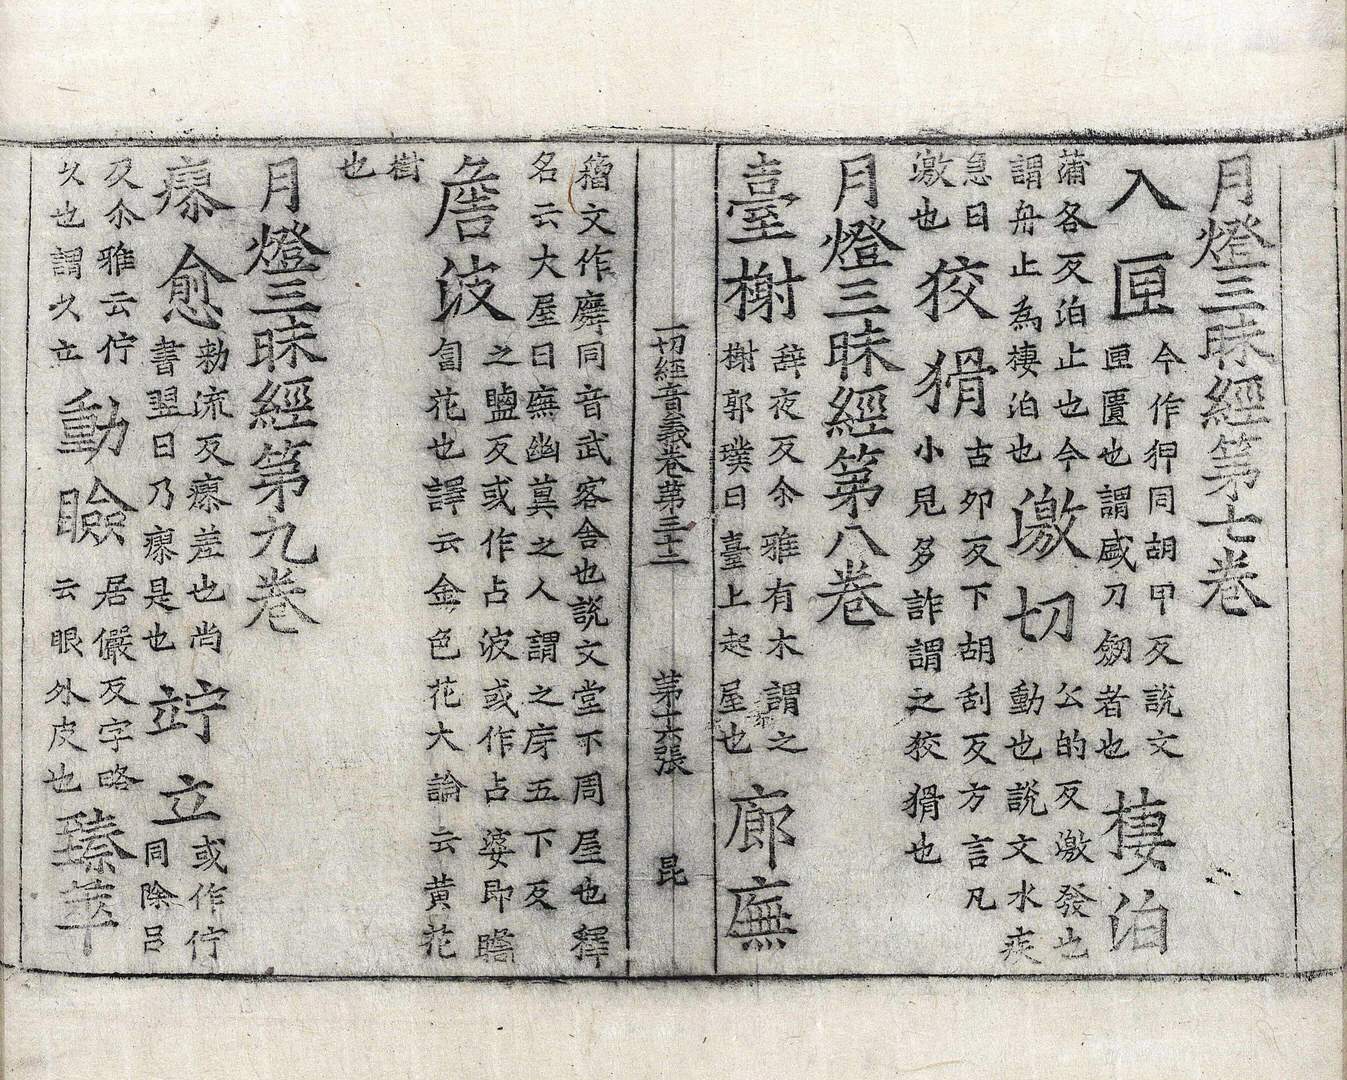 月燈三昧經第七卷
入匣
今作狎同胡甲反說文
匣匱也謂盛刀劒者也
棲泊
蒲各反泊止也今
謂舟止為棲泊也
激切
公的反激發也
動也說文水疾
急曰
激也
狡猾
古夘反下胡刮反方言凡
小兒多詐謂之狡猾也
月燈三昧經第八卷
臺榭
辞夜反尒雅有木謂之
榭郭璞曰臺上起屋也
廊廡
一切經音義卷第三十二 第十六張 昆
籀文作㢢同音武客舍也說文堂下周屋也釋
名云大屋曰廡幽冀之人謂之庌五下反
詹波
之鹽反或作占波或作占婆即瞻
匐花也譯云金色花大論云黄花
樹
也
月燈三昧經第九卷
瘳愈
勑流反瘳差也尚
書翌日乃瘳是也
竚立
或作佇
同除吕
反尒雅云佇
久也謂久立
動瞼
居儼反字略
云眼外皮也
臻萃